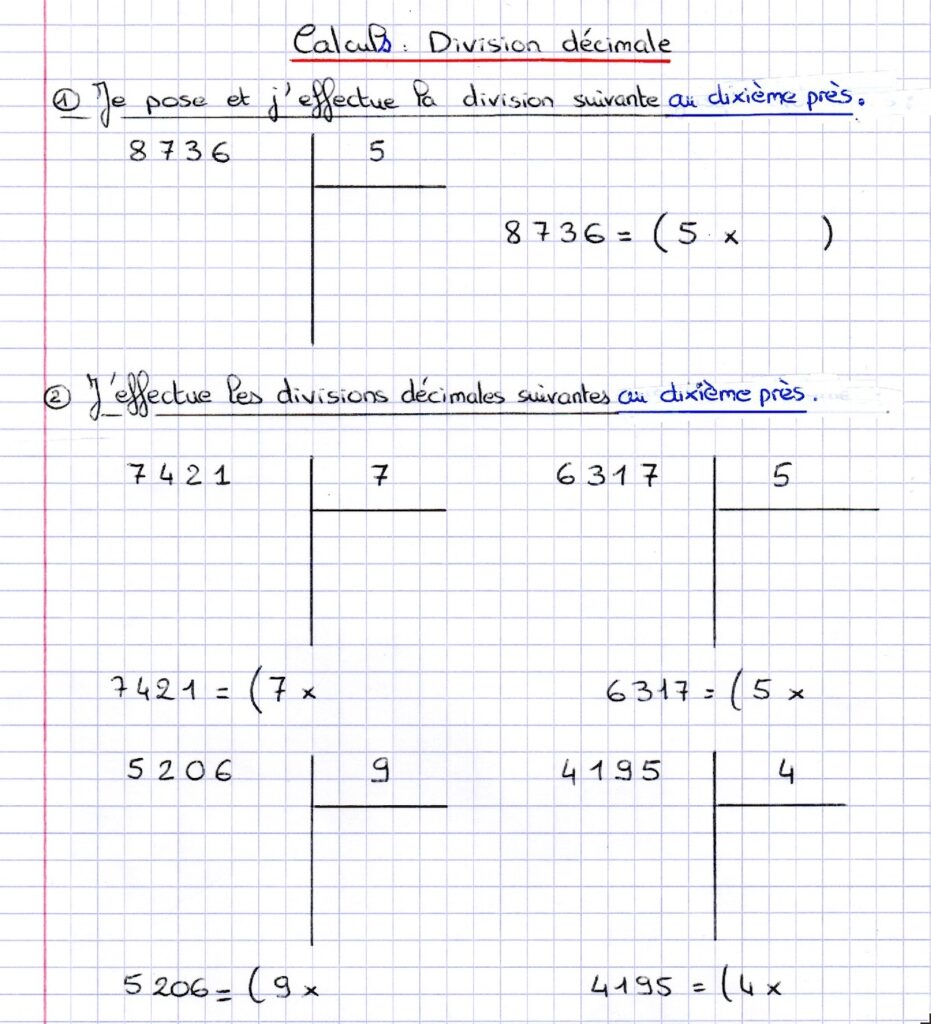 Calculs : Division décimale
① Je pose et j'effectue la division suivante au dixième près.
8736 5
8736 = ( 5 x )
② J'effectue les divisions décimales suivantes au dixième près.
7421 7 6317 5
7421 = ( 7 x 6317 = ( 5 x
5206 9 4195 4
5206 = ( 9 x 4195 = ( 4 x